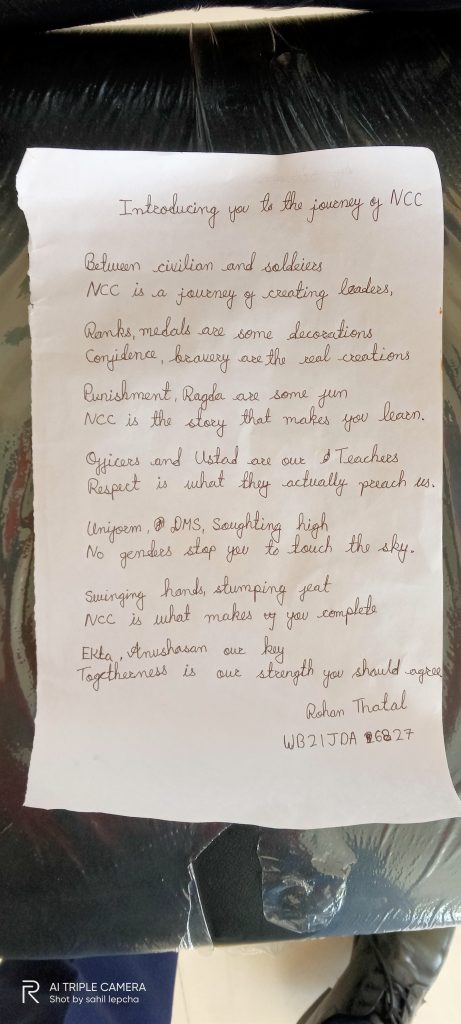 Introducing you to the journey of NCC
Between civilian and soldeiers
NCC is a journey of creating leaders,
Ranks, medals are some decorations
Confidence, bravery are the real creations
Punishment, Ragda are some fun
NCC is the story that makes you learn.
Officers and Ustad are our Teachers
Respect is what they actually preach us.
Uniform, DMS, Soughting high
No genders stop you to touch the sky.
Swinging hands, stumping feat
NCC is what makes you complete
Ekta, Anushasan our key
Togetherness is our strength you should agree
Rohan Thatal
WB21JDA 6827
AI TRIPLE CAMERA
Shot by sahil lepcha